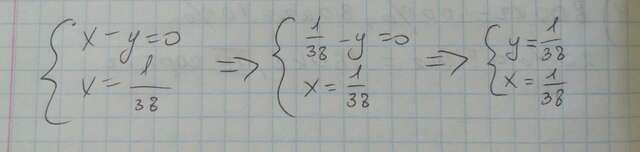 { x - y = 0
x = 1/38
=> { 1/38 - y = 0
x = 1/38
=> { y = 1/38
x = 1/38